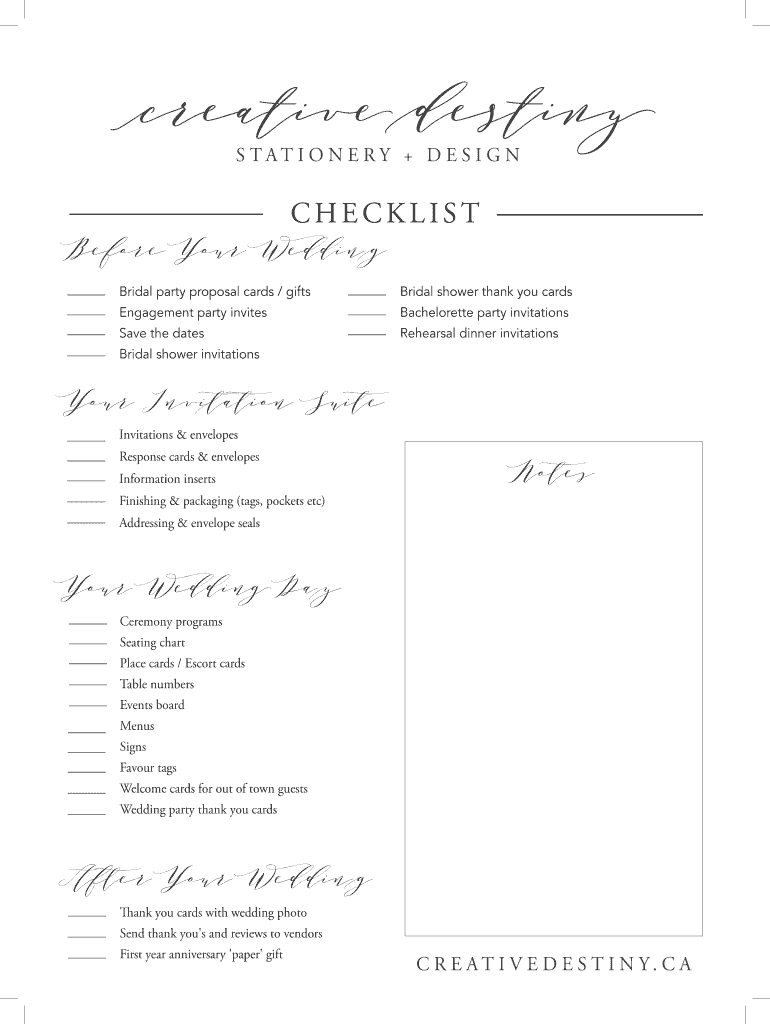 creative destiny
STATIONERY + DESIGN
CHECKLIST
Before Your Wedding
Bridal party proposal cards / gifts
Engagement party invites
Save the dates
Bridal shower invitations
Bridal shower thank you cards
Bachelorette party invitations
Rehearsal dinner invitations
Your Invitation Suite
Invitations & envelopes
Response cards & envelopes
Information inserts
Finishing & packaging (tags, pockets etc)
Addressing & envelope seals
Notes
Your Wedding Day
Ceremony programs
Seating chart
Place cards / Escort cards
Table numbers
Events board
Menus
Signs
Favour tags
Welcome cards for out of town guests
Wedding party thank you cards
After Your Wedding
Thank you cards with wedding photo
Send thank you's and reviews to vendors
First year anniversary 'paper' gift
CREATIVEDESTINY.CA